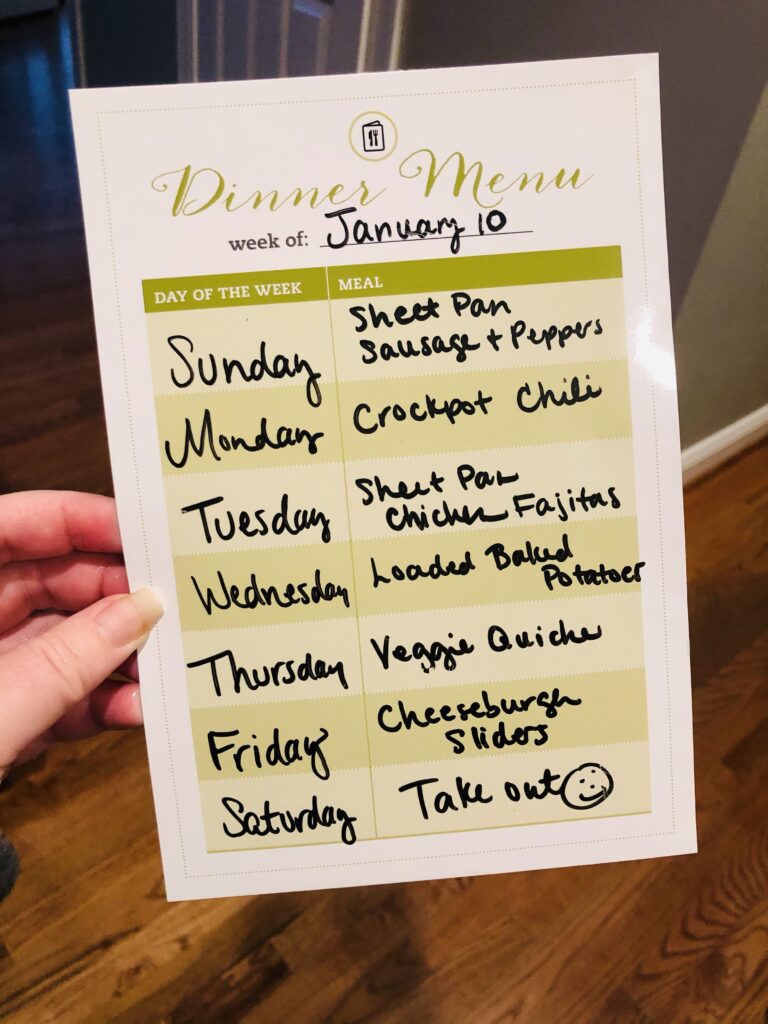 Dinner Menu
week of: January 10
DAY OF THE WEEK MEAL
Sunday Sheet Pan
Sausage + Peppers
Monday Crockpot Chili
Tuesday Sheet Pan
Chicken Fajitas
Wednesday Loaded Baked
Potatoes
Thursday Veggie Quiche
Friday Cheeseburger
Sliders
Saturday Take out